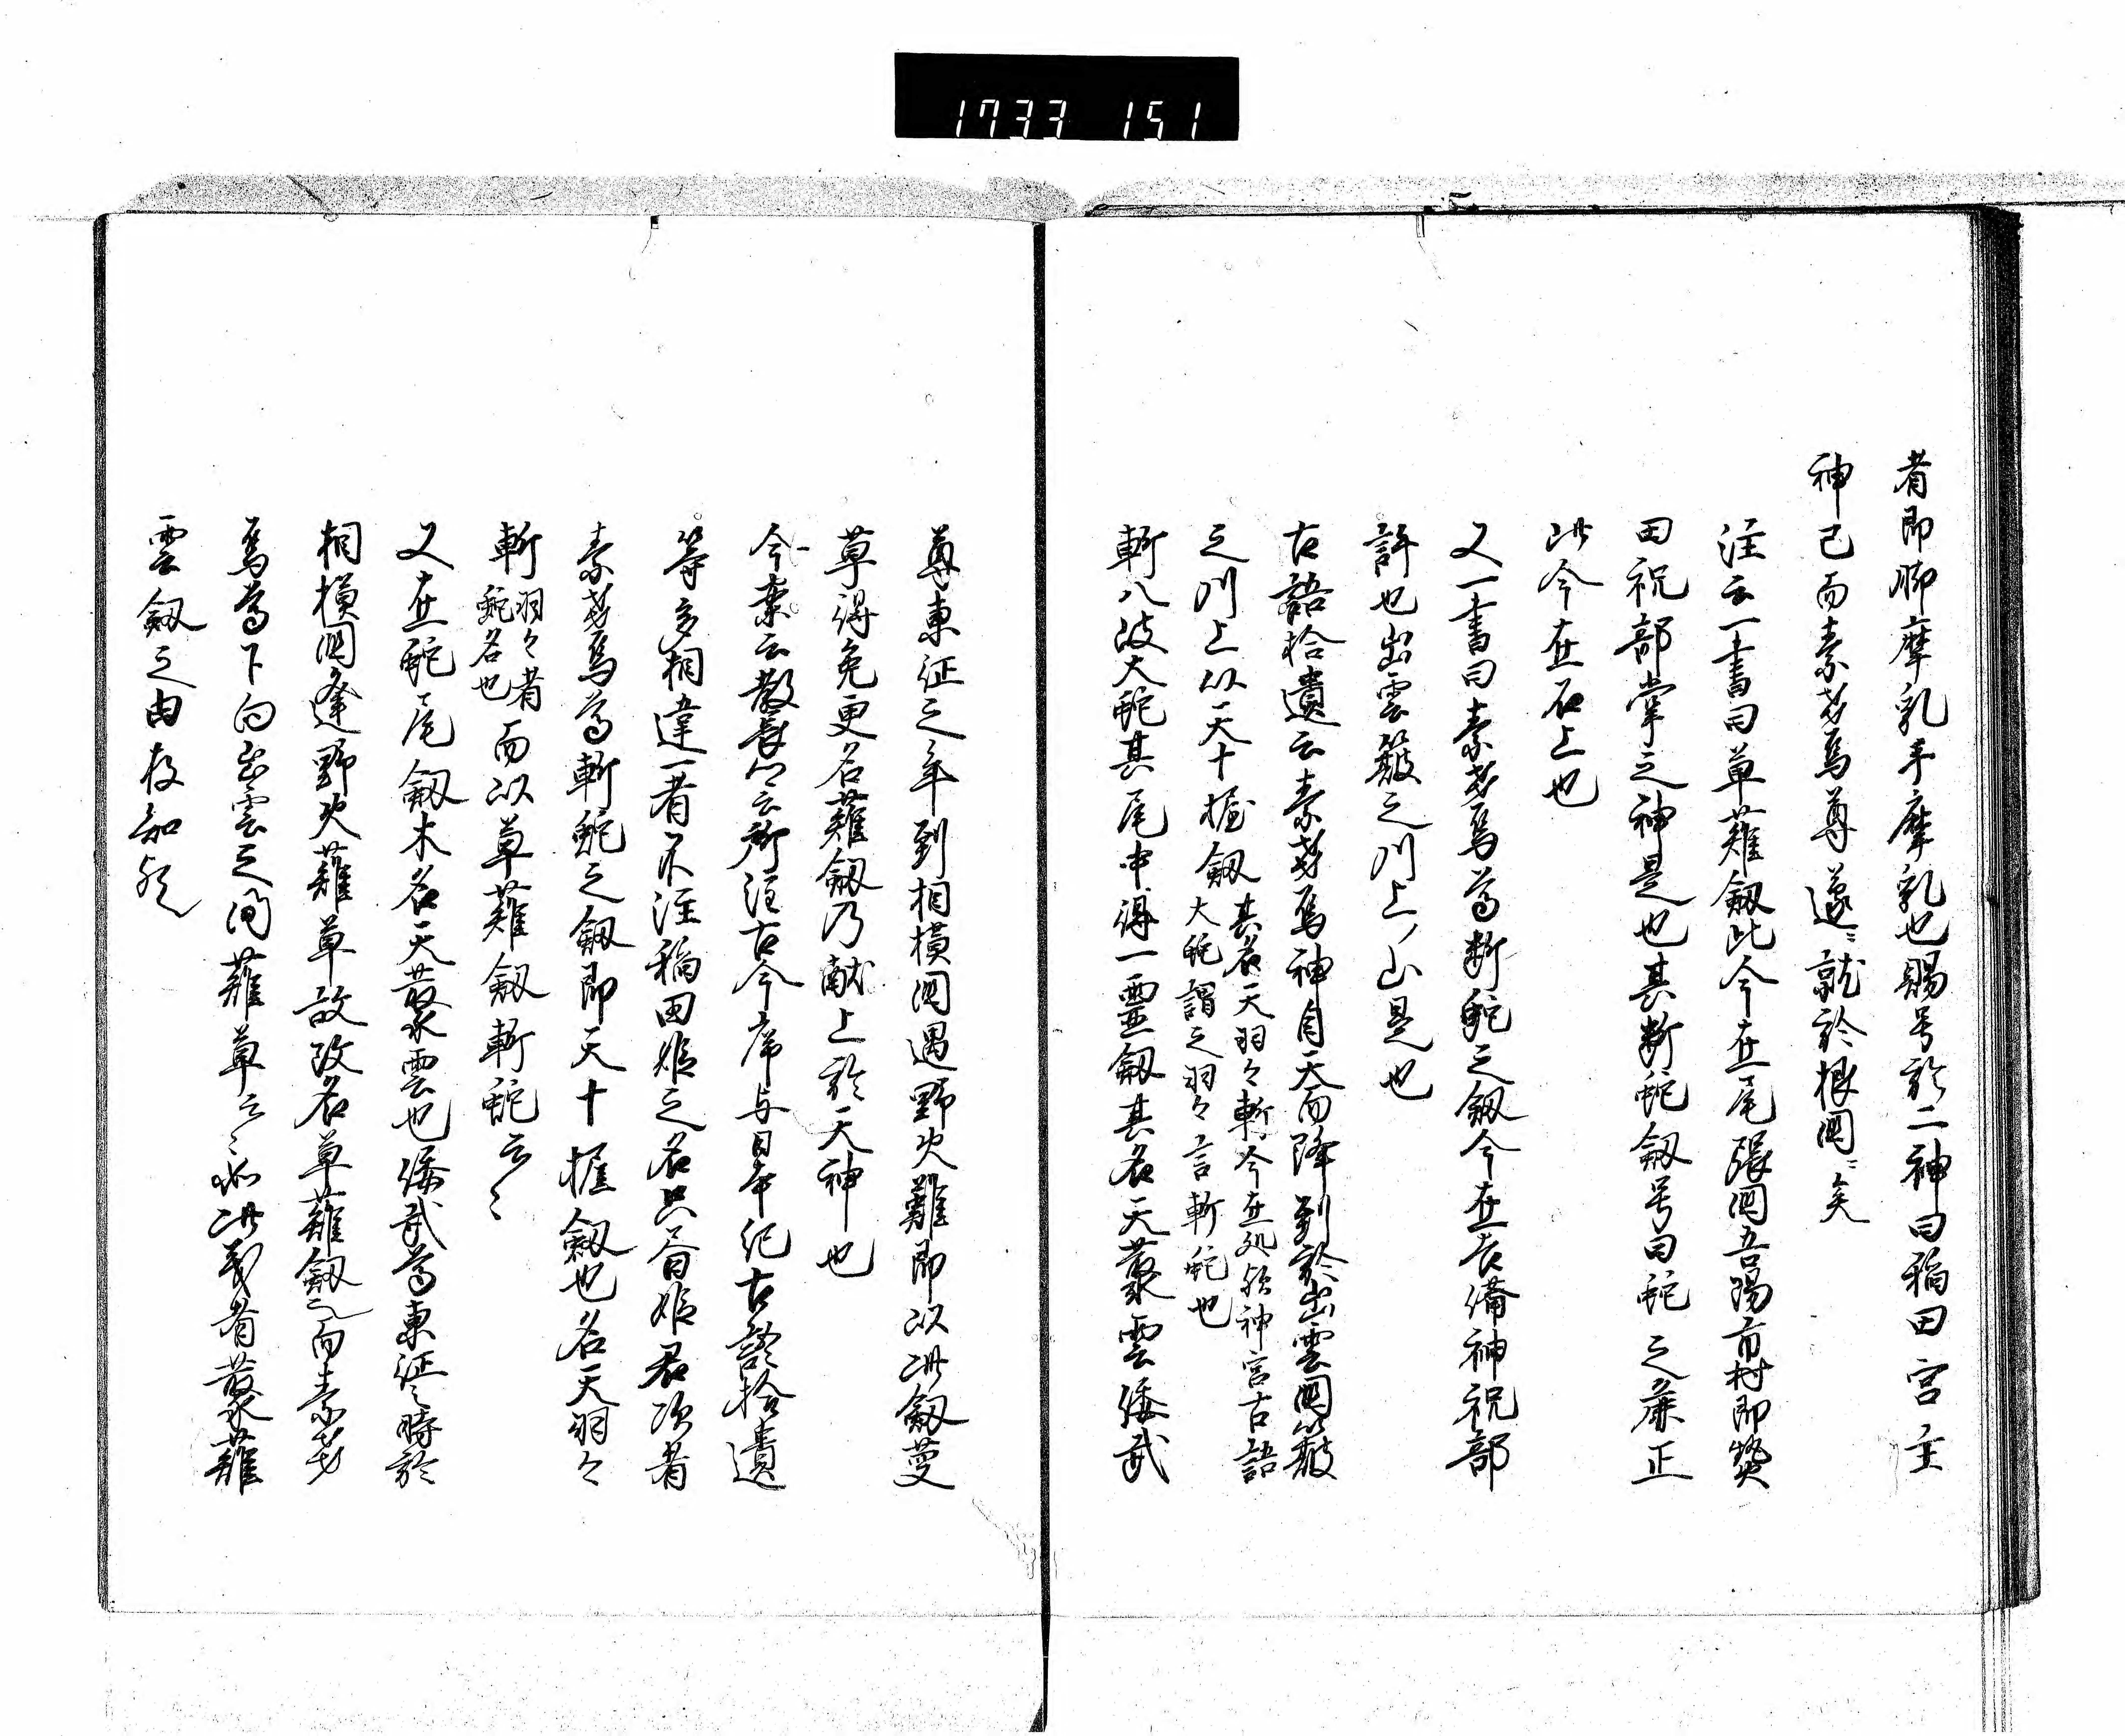 1733 151
者即脚摩乳手摩乳也賜号於二神曰稲田宮主
神已而素戔烏尊遂ニ就於根国ニ矣
注云一書曰草薙剱此今在尾張国吾湯市村即熱
田祝部掌之神是也其断蛇剱号曰蛇之麁正
此今在石上也
又一書曰素戔烏尊断蛇之剱今在吉備神祝部
許也出雲簸之川上山是也
古語拾遺云素戔烏神自天而降到於出雲国簸
之川上以天十握剱其名天羽々斬今在処於神宮古語
大蛇謂之羽々言斬蛇也
斬八岐大蛇其尾中得一霊剱其名天叢雲倭武
尊東征之年到相模国遇野火難即以此剱薙
草得免更名薙剱乃献上於天神也
今案云教長公云所注古今序与日本紀古語拾遺
等多相違一者不注稲田姫之名只旨姫君次者
素戔烏尊斬蛇之剱即天十握剱也名天羽々
斬羽々者
蛇名也而以草薙剱斬蛇云々
又在蛇尾剱本名天叢雲也倭武尊東征之時於
相模国逢野火薙草故改名草薙剱而素戔
烏尊下向出雲之間薙草云々以此義者叢薙
雲剱之由存知歟